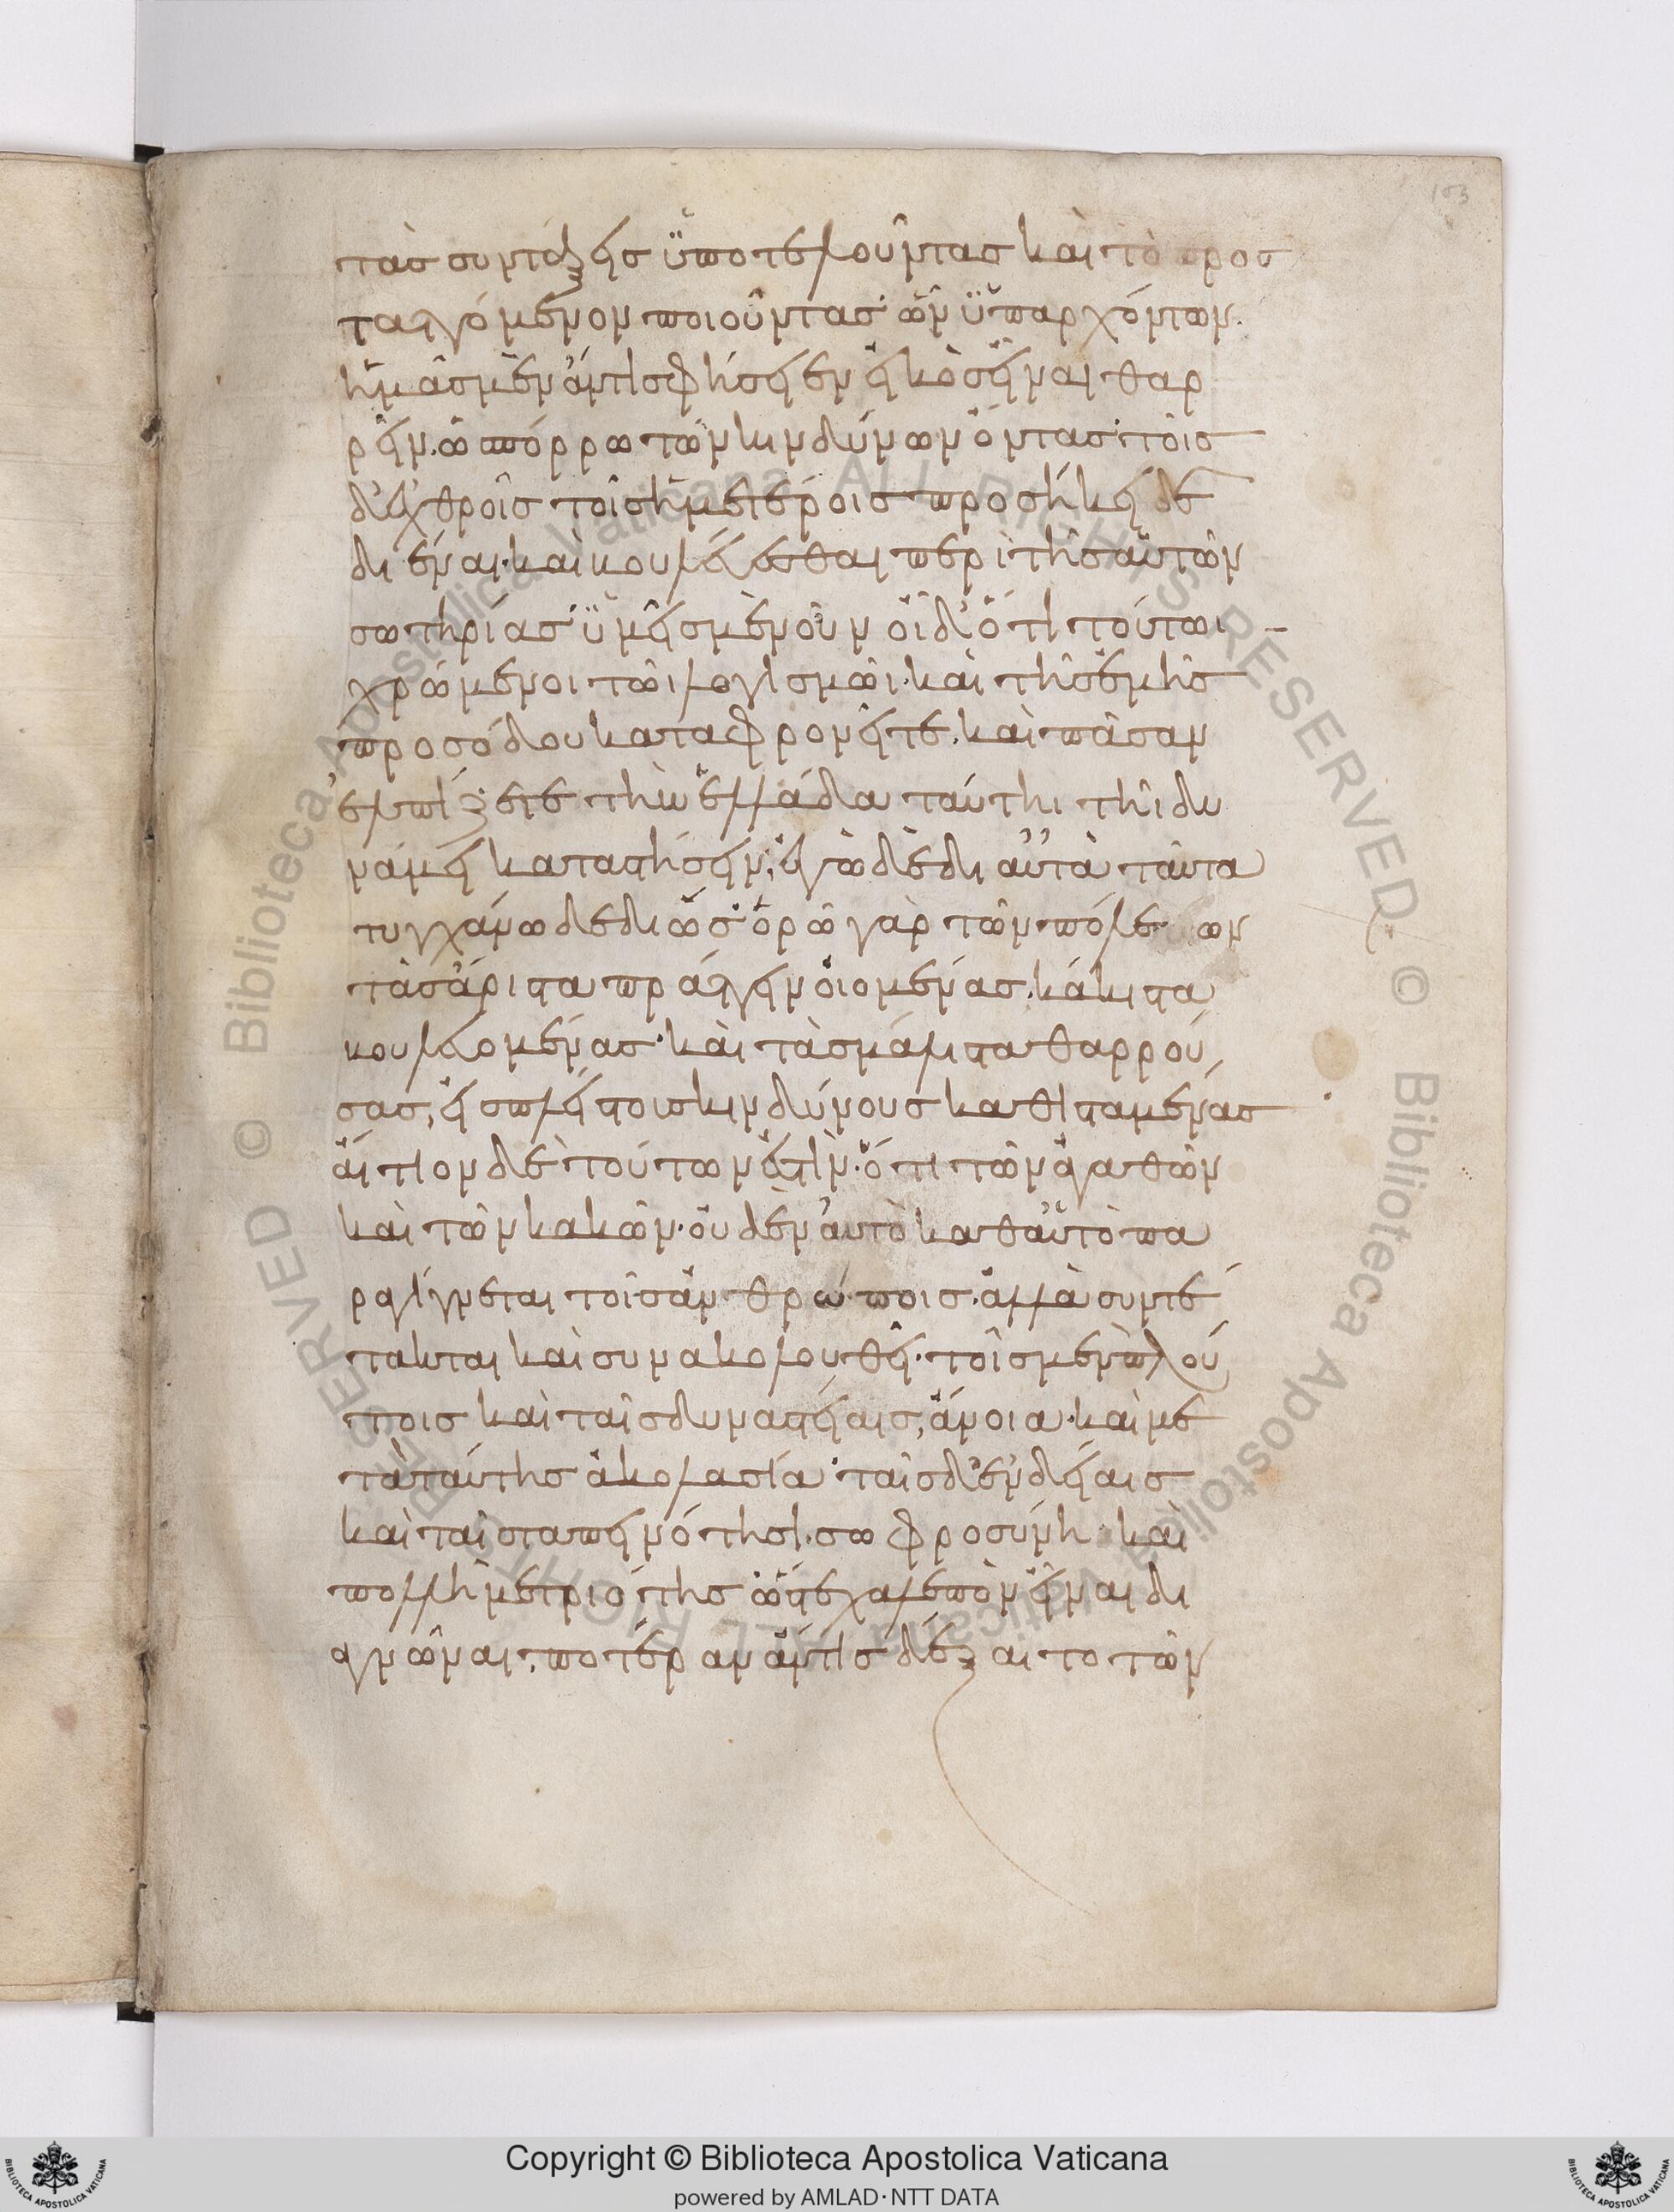 103
τὰσ συντάξεισ ὑποτελοῦντασ καὶ τὸ προσ
ταττόμενον ποιοῦντασ· ὧν ὑπαρχόντων·
ἡμᾶσ μὲν ἄν τισ φήσειεν εἰκὸσ εἶναι θαρ
ρεῖν· ὡσ πόρρω τῶν κινδύνων ὄντασ· τοῖσ
δ' ἐχθροῖσ τοῖσ ἡμετέροισ προσήκει δε
διέναι· καὶ βουλεύεσθαι περὶ τῆσ αὑτῶν
σωτηρίασ· ὑμεῖσ μὲν οὖν οἶδ' ὅτι τούτωι
χρώμενοι τῶι λογισμῶι· καὶ τῆσ ἐμῆσ
προσόδου καταφρονεῖτε· καὶ πᾶσαν
ἐλπίζετε τὴν ἑλλάδα ταύτηι τῆι δυ
νάμει κατασχήσειν· ἐγὼ δὲ δι αὐτὰ ταῦτα
τυγχάνω δεδιώσ· ὁρῶ γὰρ τῶν πόλεων
τὰσ ἄριστα πράττειν οἰομένασ· κάκιστα
βουλευομένασ· καὶ τὰσ μάλιστα θαρρού
σασ, εἰσ πλείστουσ κινδύνουσ καθισταμένασ
αἴτιον δὲ τούτων ἐστὶν· ὅτι τῶν ἀγαθῶν
καὶ τῶν κακῶν· οὐδὲν αὐτὸ καθ αὑτὸ πα
ραγίγνεται τοῖσ ἀνθρώποισ· ἀλλὰ συντέ
τακται καὶ συνακολουθεῖ· τοῖσ μὲν πλού
τοισ καὶ ταῖσ δυναστείαισ, ἄνοια· καὶ με
τὰ ταύτησ ἀκολασία· ταῖσ δ' ἐνδείαισ
καὶ ταῖσ ταπεινότησι· σωφροσύνη καὶ
πολλὴ μετριότησ· ὥστε χαλεπὸν εἶναι δι
αγνῶναι, ποτέραν ἄν τισ δέξαιτο τῶν
Copyright © Biblioteca Apostolica Vaticana
powered by AMLAD·NTT DATA